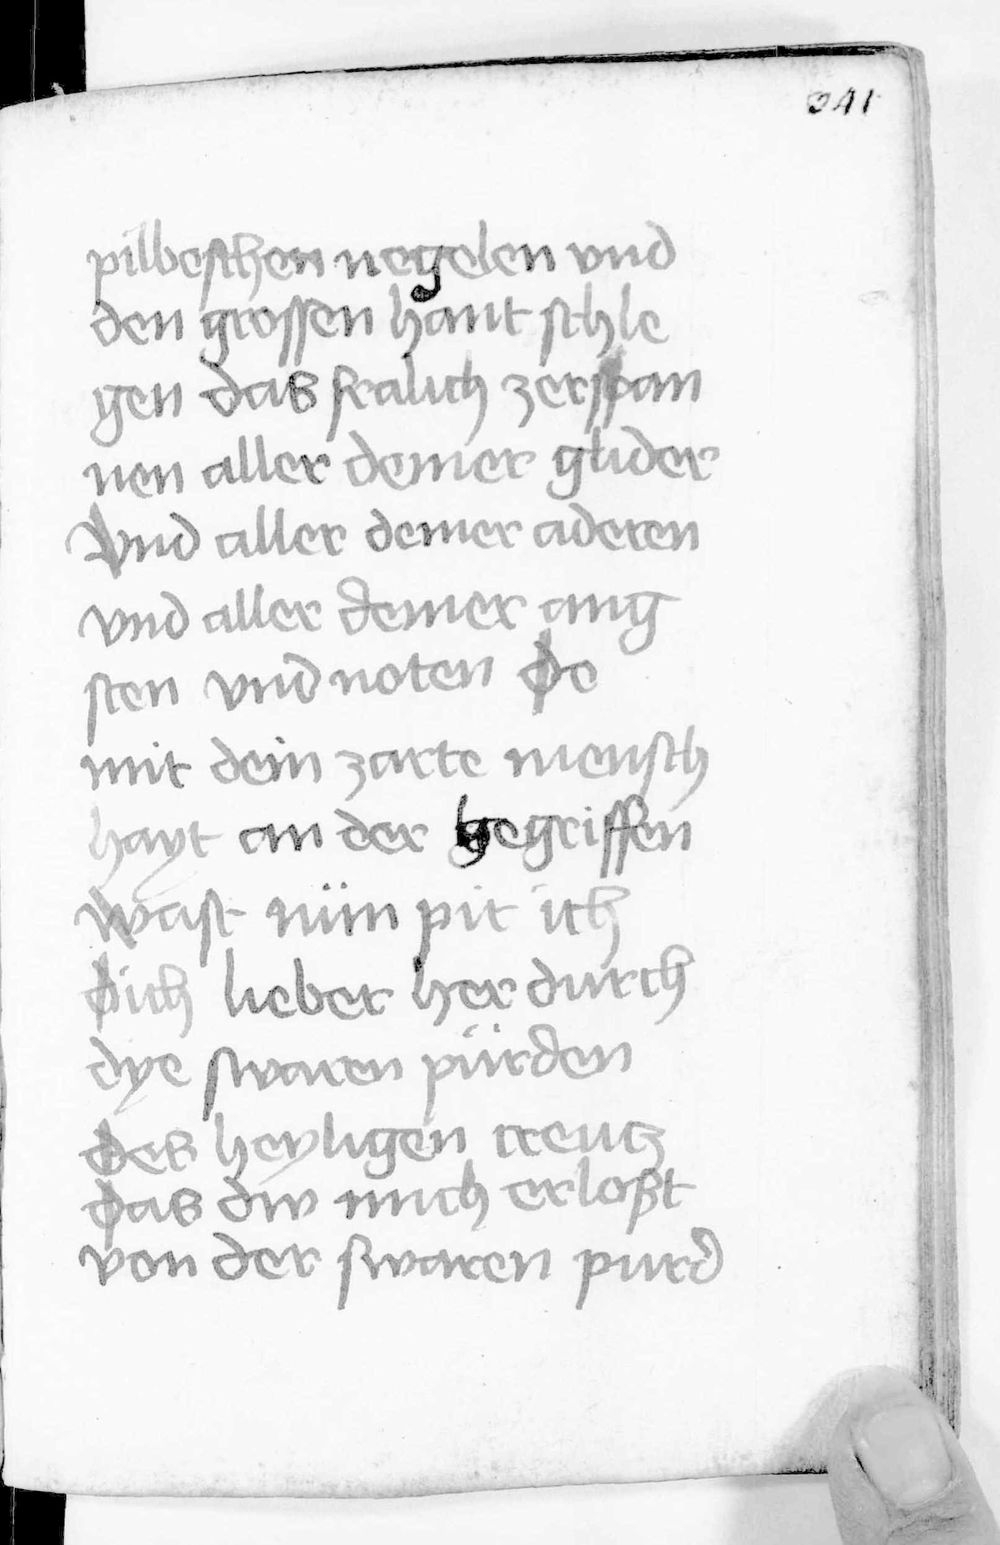 241
pilbeschen negelen vnd
den grossen hant schle
gen das fralich zerspan
nen aller deiner glider
Vnd aller deiner aderen
vnd aller deiner ang
sten vnd noten De
mit dein zarte mensch
hayt an der begriffen
wast nün pit ich
Dich lieber her durch
dye swaren pürden
Des heyligen creutz
Das dw mich erloßt
von der swaren purd